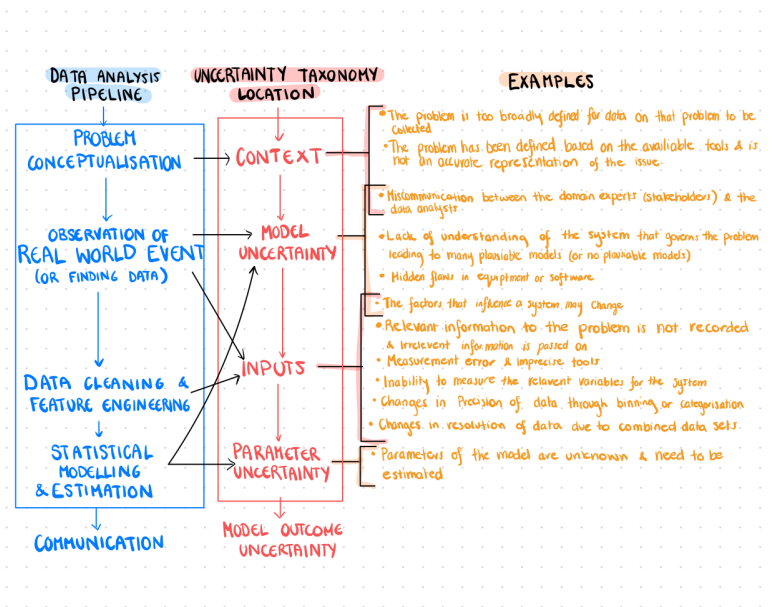 DATA ANALYSIS
PIPELINE
PROBLEM
CONCEPTUALISATION
OBSERVATION OF
REAL WORLD EVENT
(OR FINDING DATA)
DATA CLEANING &
FEATURE ENGINEERING
STATISTICAL
MODELLING
& ESTIMATION
COMMUNICATION
UNCERTAINTY TAXONOMY
LOCATION
CONTEXT
MODEL
UNCERTAINTY
INPUTS
PARAMETER
UNCERTAINTY
MODEL OUTCOME
UNCERTAINTY
EXAMPLES
• The problem is too broadly defined for data on that problem to be
collected
• The problem has been defined based on the availiable tools & is
not an accurate representation of the issue.
• Miscommunication between the domain experts (stakeholders) & the
data analysts
• Lack of understanding of the system that governs the problem
leading to many plausible models (or no plausible models)
• Hidden flaws in equiptment or software
• The factors that influence a system may change
• Relevant information to the problem is not recorded
& irrelevent information is passed on
• Measurement error & imprecise tools
• Inability to measure the relavent variables for the system
• Changes in Precision of data through binning or categorisation
• Changes in resolution of data due to combined data sets.
• Parameters of the model are unknown & need to be
estimated